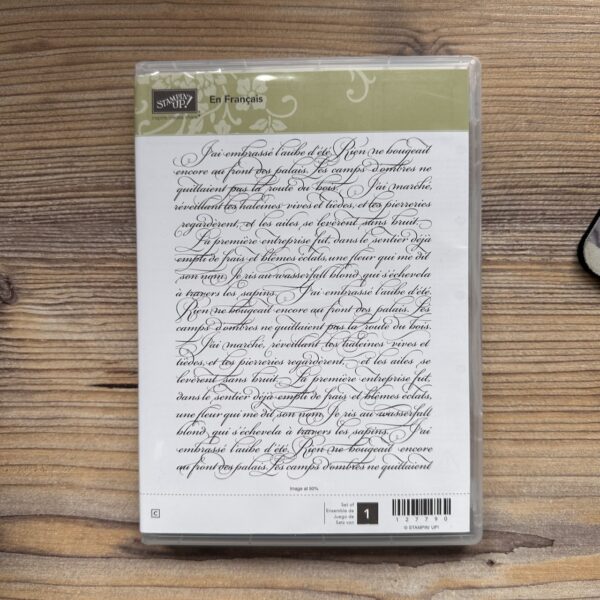 STAMPIN' UP!
En Français
J'ai embrassé l'aube d'été. Rien ne bougeait
encore au front des palais. Les camps d'ombres ne
quittaient pas la route du bois. J'ai marché,
réveillant les haleines vives et tièdes, et les pierreries
regardèrent, et les ailes se levèrent sans bruit.
La première entreprise fut, dans le sentier déjà
empli de frais et blêmes éclats, une fleur qui me dit
son nom. Je ris au wasserfall blond qui s'échevela
à travers les sapins. J'ai embrassé l'aube d'été.
Rien ne bougeait encore au front des palais. Les
camps d'ombres ne quittaient pas la route du bois.
J'ai marché, réveillant les haleines vives et
tièdes, et les pierreries regardèrent, et les ailes se
levèrent sans bruit. La première entreprise fut,
dans le sentier déjà empli de frais et blêmes éclats,
une fleur qui me dit son nom. Je ris au wasserfall
blond qui s'échevela à travers les sapins. J'ai
embrassé l'aube d'été. Rien ne bougeait encore
au front des palais. Les camps d'ombres ne quittaient
Image at 50%
C
Set of
Ensemble de
Juego de
Sets von
1
127790
© STAMPIN' UP!